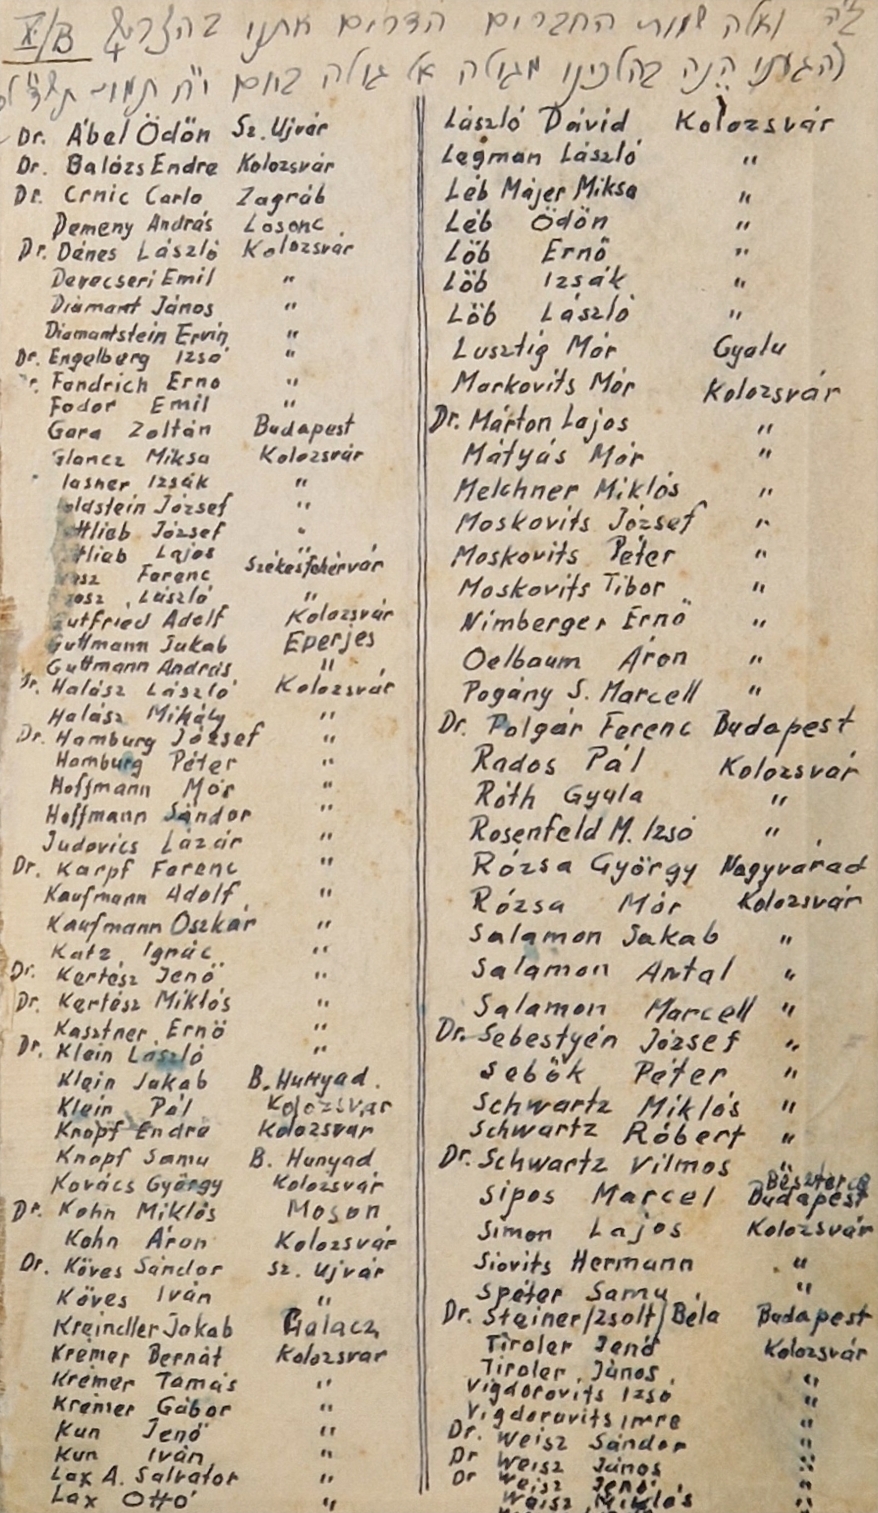 ב"ה ואלה שמות החברים הדרים אתנו בהצריף X/B
(הגענו הנה בהלכינו מגולה אל גולה ביום י"ח תמוז
Dr. Ábel Ödön Sz. Ujvár
Dr. Balázs Endre Kolozsvár
Dr. Crnic Carlo Zagráb
Demeny András Losonc
Dr. Dénes László Kolozsvár
Devecseri Emil "
Diamant János "
Diamantstein Ervin "
Dr. Engelberg Izsó "
Dr. Fendrich Ernö "
Fodor Emil "
Gara Zoltán Budapest
Glancz Miksa Kolozsvár
lasner Izsák "
oldstein József "
ttlieb József "
tlieb Lajos "
sz Ferenc Székesfehérvár
osz László "
Gutfried Adolf Kolozsvár
Guttmann Jakab Eperjes
Guttmann András "
Dr. Halász László Kolozsvár
Halász Mihály "
Dr. Hamburg József "
Hamburg Péter "
Hoffmann Mór "
Hoffmann Sándor "
Judovics Lázár "
Dr. Karpf Ferenc "
Kaufmann Adolf "
Kaufmann Oszkár "
Katz Ignác "
Dr. Kertész Jenö "
Dr. Kertész Miklós "
Kasztner Ernö "
Dr. Klein László "
Klein Jakab B. Hunyad.
Klein Pál Kolozsvár
Knopf Endre Kolozsvár
Knopf Samu B. Hunyad
Kovács György Kolozsvár
Dr. Kohn Miklós Moson
Kohn Áron Kolozsvár
Dr. Köves Sándor Sz. Ujvár
Köves Iván "
Kreindler Jakab Galacz
Krémer Bernát Kolozsvar
Krémer Tamás "
Krémer Gábor "
Kun Jenö "
Kun Iván "
Lax A. Salvator "
Lax Ottó "
László Dávid Kolozsvár
Legman László "
Léb Májer Miksa "
Léb Ödön "
Löb Ernö "
Löb Izsák "
Löb László "
Lusztig Mór Gyalu
Markovits Mór Kolozsvár
Dr. Márton Lajos "
Mátyás Mór "
Melchner Miklós "
Moskovits József "
Moskovits Péter "
Moskovits Tibor "
Nimberger Ernö "
Oelbaum Áron "
Pogány S. Marcell "
Dr. Polgár Ferenc Budapest
Rados Pál Kolozsvár
Róth Gyula "
Rosenfeld M. Izsó "
Rózsa György Nagyvárad
Rózsa Mór Kolozsvár
Salamon Jakab "
Salamon Antal "
Salamon Marcell "
Dr. Sebestyén József "
Sebök Péter "
Schwartz Miklós "
Schwartz Róbert "
Dr. Schwartz Vilmos Beszterce
Sipos Marcel Budapest
Simon Lajos Kolozsvár
Siovits Hermann "
Spéter Samu "
Dr. Steiner/Zsolt/Béla Budapest
Tiroler Jenö Kolozsvár
Tiroler János "
Vigdorovits Izsó "
Vigdorovits Imre "
Dr. Weisz Sándor "
Dr Weisz János "
Dr Weisz Jenö "
Weisz Miklós "